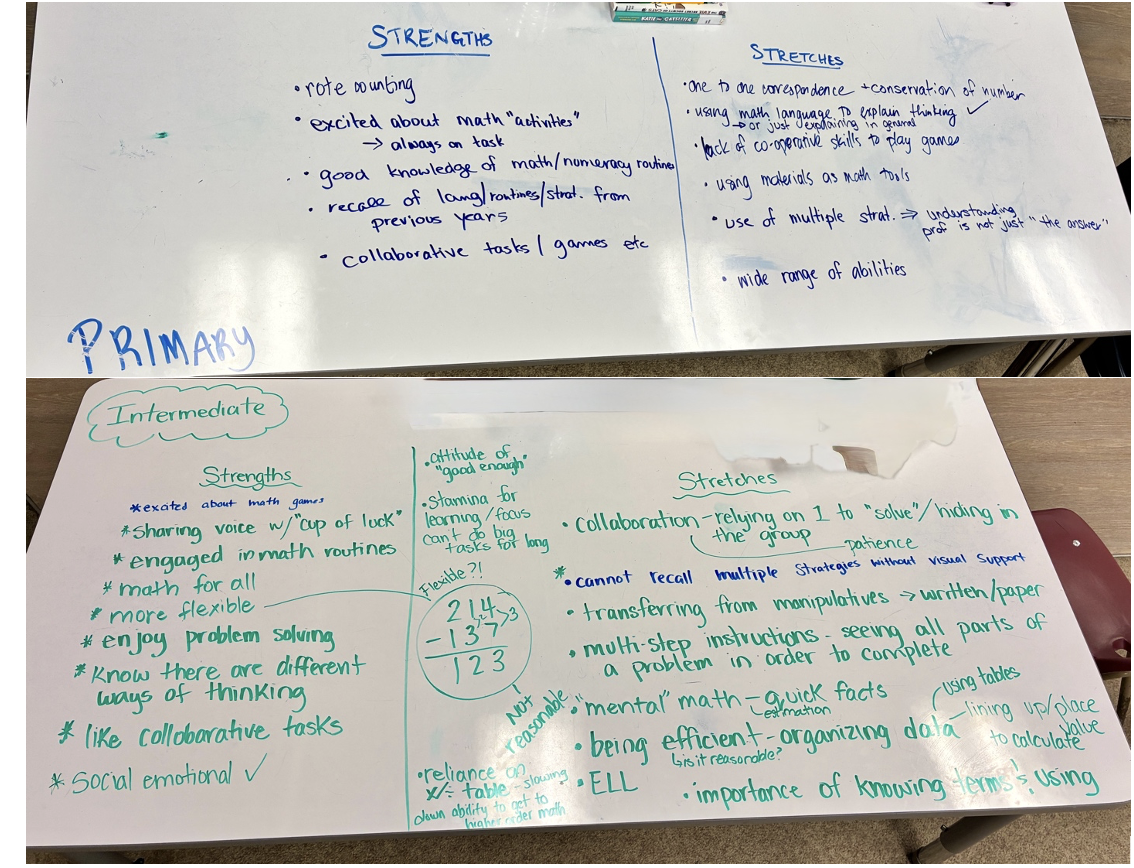 STRENGTHS
• rote counting
• excited about math "activities"
→ always on task
• good knowledge of math/numeracy routines
• recall of lang/routines/strat. from
previous years
• collaborative tasks / games etc
STRETCHES
• one to one correspondence + conservation of number
• using math language to explain thinking ✓
→ or just explaining in general
• lack of co-operative skills to play games
• using materials as math tools
• use of multiple strat. ⇒ understanding
prof is not just "the answer"
• wide range of abilities
PRIMARY
Intermediate
Strengths
* excited about math games
* sharing voice w/ "cup of luck"
* engaged in math routines
* math for all
* more flexible
* enjoy problem solving
* Know there are different
ways of thinking
* like colloborative tasks
* Social emotional ✓
• attitude of
"good enough"
• Stamina for
learning / focus
can't do big
tasks for long
Flexible?!
214
>3
- 137
123
Not
reasonable
• reliance on
x/÷ table - slowing
down ability to get to
higher order math
Stretches
• collaboration - relying on 1 to "solve" / hiding in
the group
patience
* • cannot recall multiple strategies without visual support
• transferring from manipulatives → written/paper
• multi-step instructions - seeing all parts of
a problem in order to complete
• "mental" math - quick facts
estimation
• being efficient - organizing data
using tables
lining up/place
value
to calculate
is it reasonable?
• ELL
• importance of knowing terms & using